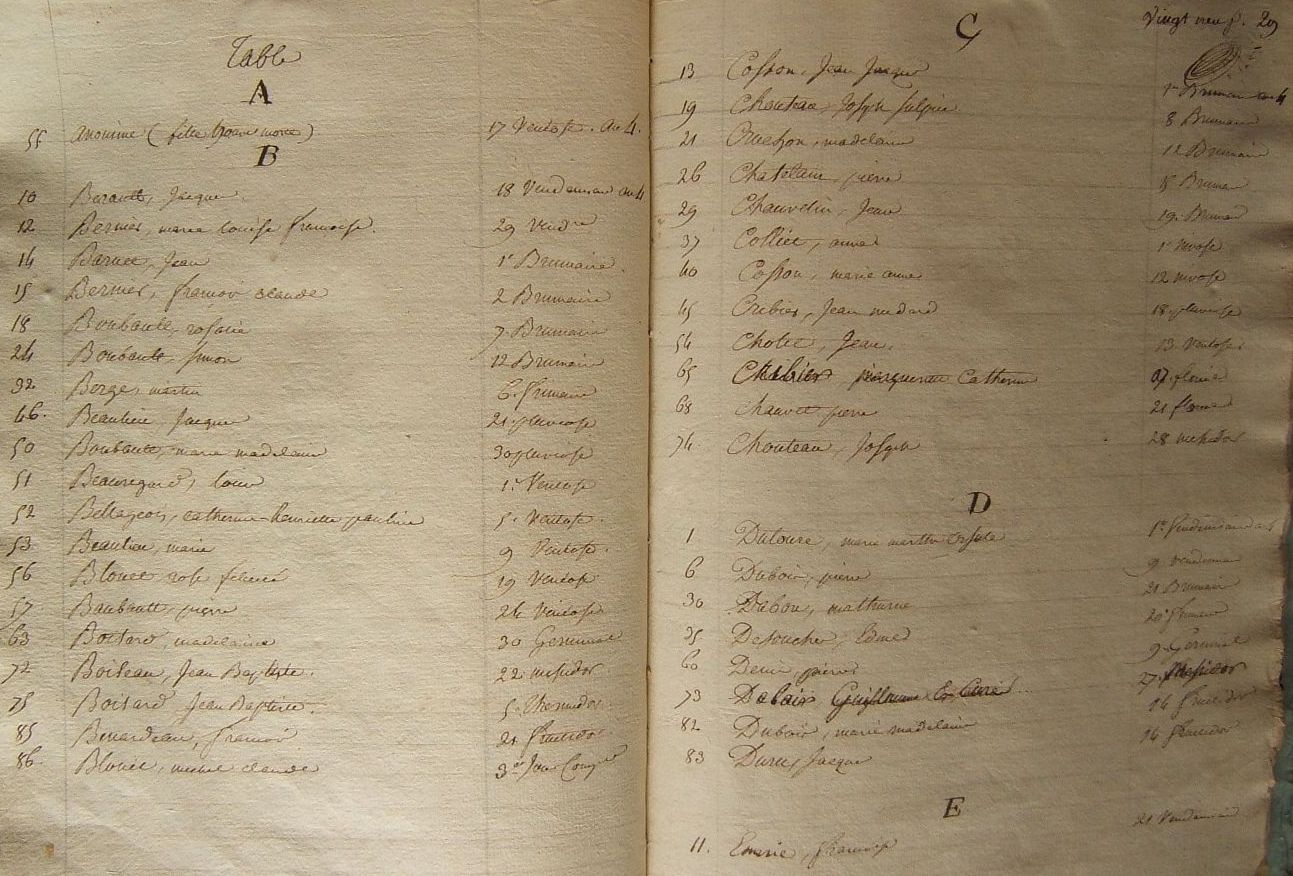 Table
A
55 anonime (fille trouvée morte) 17 Ventose. an 4.
B
10 Berault, Jacque 18 Vendemiaire an 4
12 Bernier, marie Louise francoise. 29 Vendre
14 Barnet, Jean 1er Brumaire.
15 Bernier, francois claude 2 Brumaire
18 Boubault, rosalie 7 Brumaire
24 Boubault, simon 12 Brumaire
32 Borge, martin 6. frimaire
46. Beaulieu, Jacque 21. pluviose
50 Boubault, marie madelaine 30 pluviose
51 Beauregard, Louis 1er Ventose
52 catherine henriette pauline 5. Ventose.
53 Beaulieu, marie 9 Ventose.
56 Blouet, rose felicité 19 Ventose
57 Baubault, pierre 24 Ventose
63 Boitard, madelaine 30 Germinal
72 Boileau, Jean Baptiste. 22 messidor
75 Boitard Jean Baptiste. 5. Thermidor
85 Benardeau, francois 21 fructidor
86. Blouet, michel claude 3e Jour
Vingt neuf. 29
C
13 Cosson, Jean Jacque 1er Brumaire an 4
19 Chouteau Joseph sulpice 8 Brumaire
21 madelaine 12 Brumaire
26 Chatelain, pierre 15 Brumaire
29 Chauvelin, Jean 19. Brumaire
37 Colliet, anne 1er nivose
40 Cosson, marie anne 12 nivose
45 Cribier, Jean medard 18. pluviose
54 Cholet, Jean. 13 Ventose
65 Cribier Catherine 27. floréal
68 Chauvet pierre 21 floréal
74 Chouteau, Joseph 28 messidor
D
1 Datoure, marie marthe Ursule 1er Vendemiaire an 4
6 Dubois, pierre 9 Vendemiaire
30 Dabou, mathurine 21 Brumaire
35 Desoucher, Edmé 20. frimaire
60 Denis, pierre 9. Germinal
73 Dabais Guillaume Ex Curé 27. Messidor
82 Dubois, marie madelaine 14 fructidor
83 Duru, Jacque 16 fructidor
E
11. francoise 21 Vendemiaire